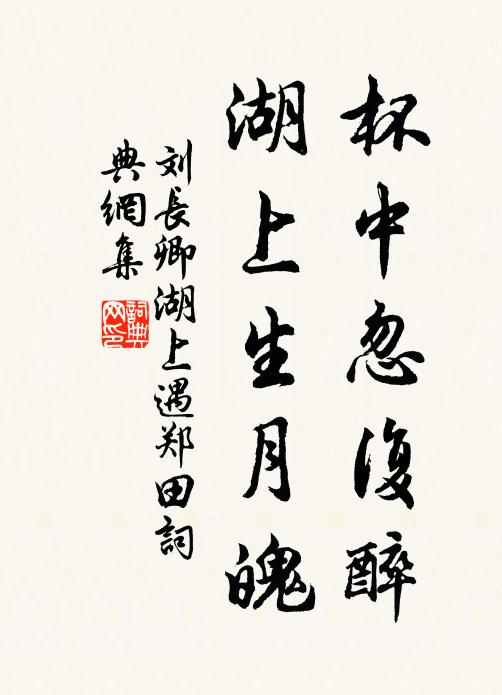 杯中忽復醉
湖上生月魄
刘長卿湖上遇郑田詞
典網集
詞典网印